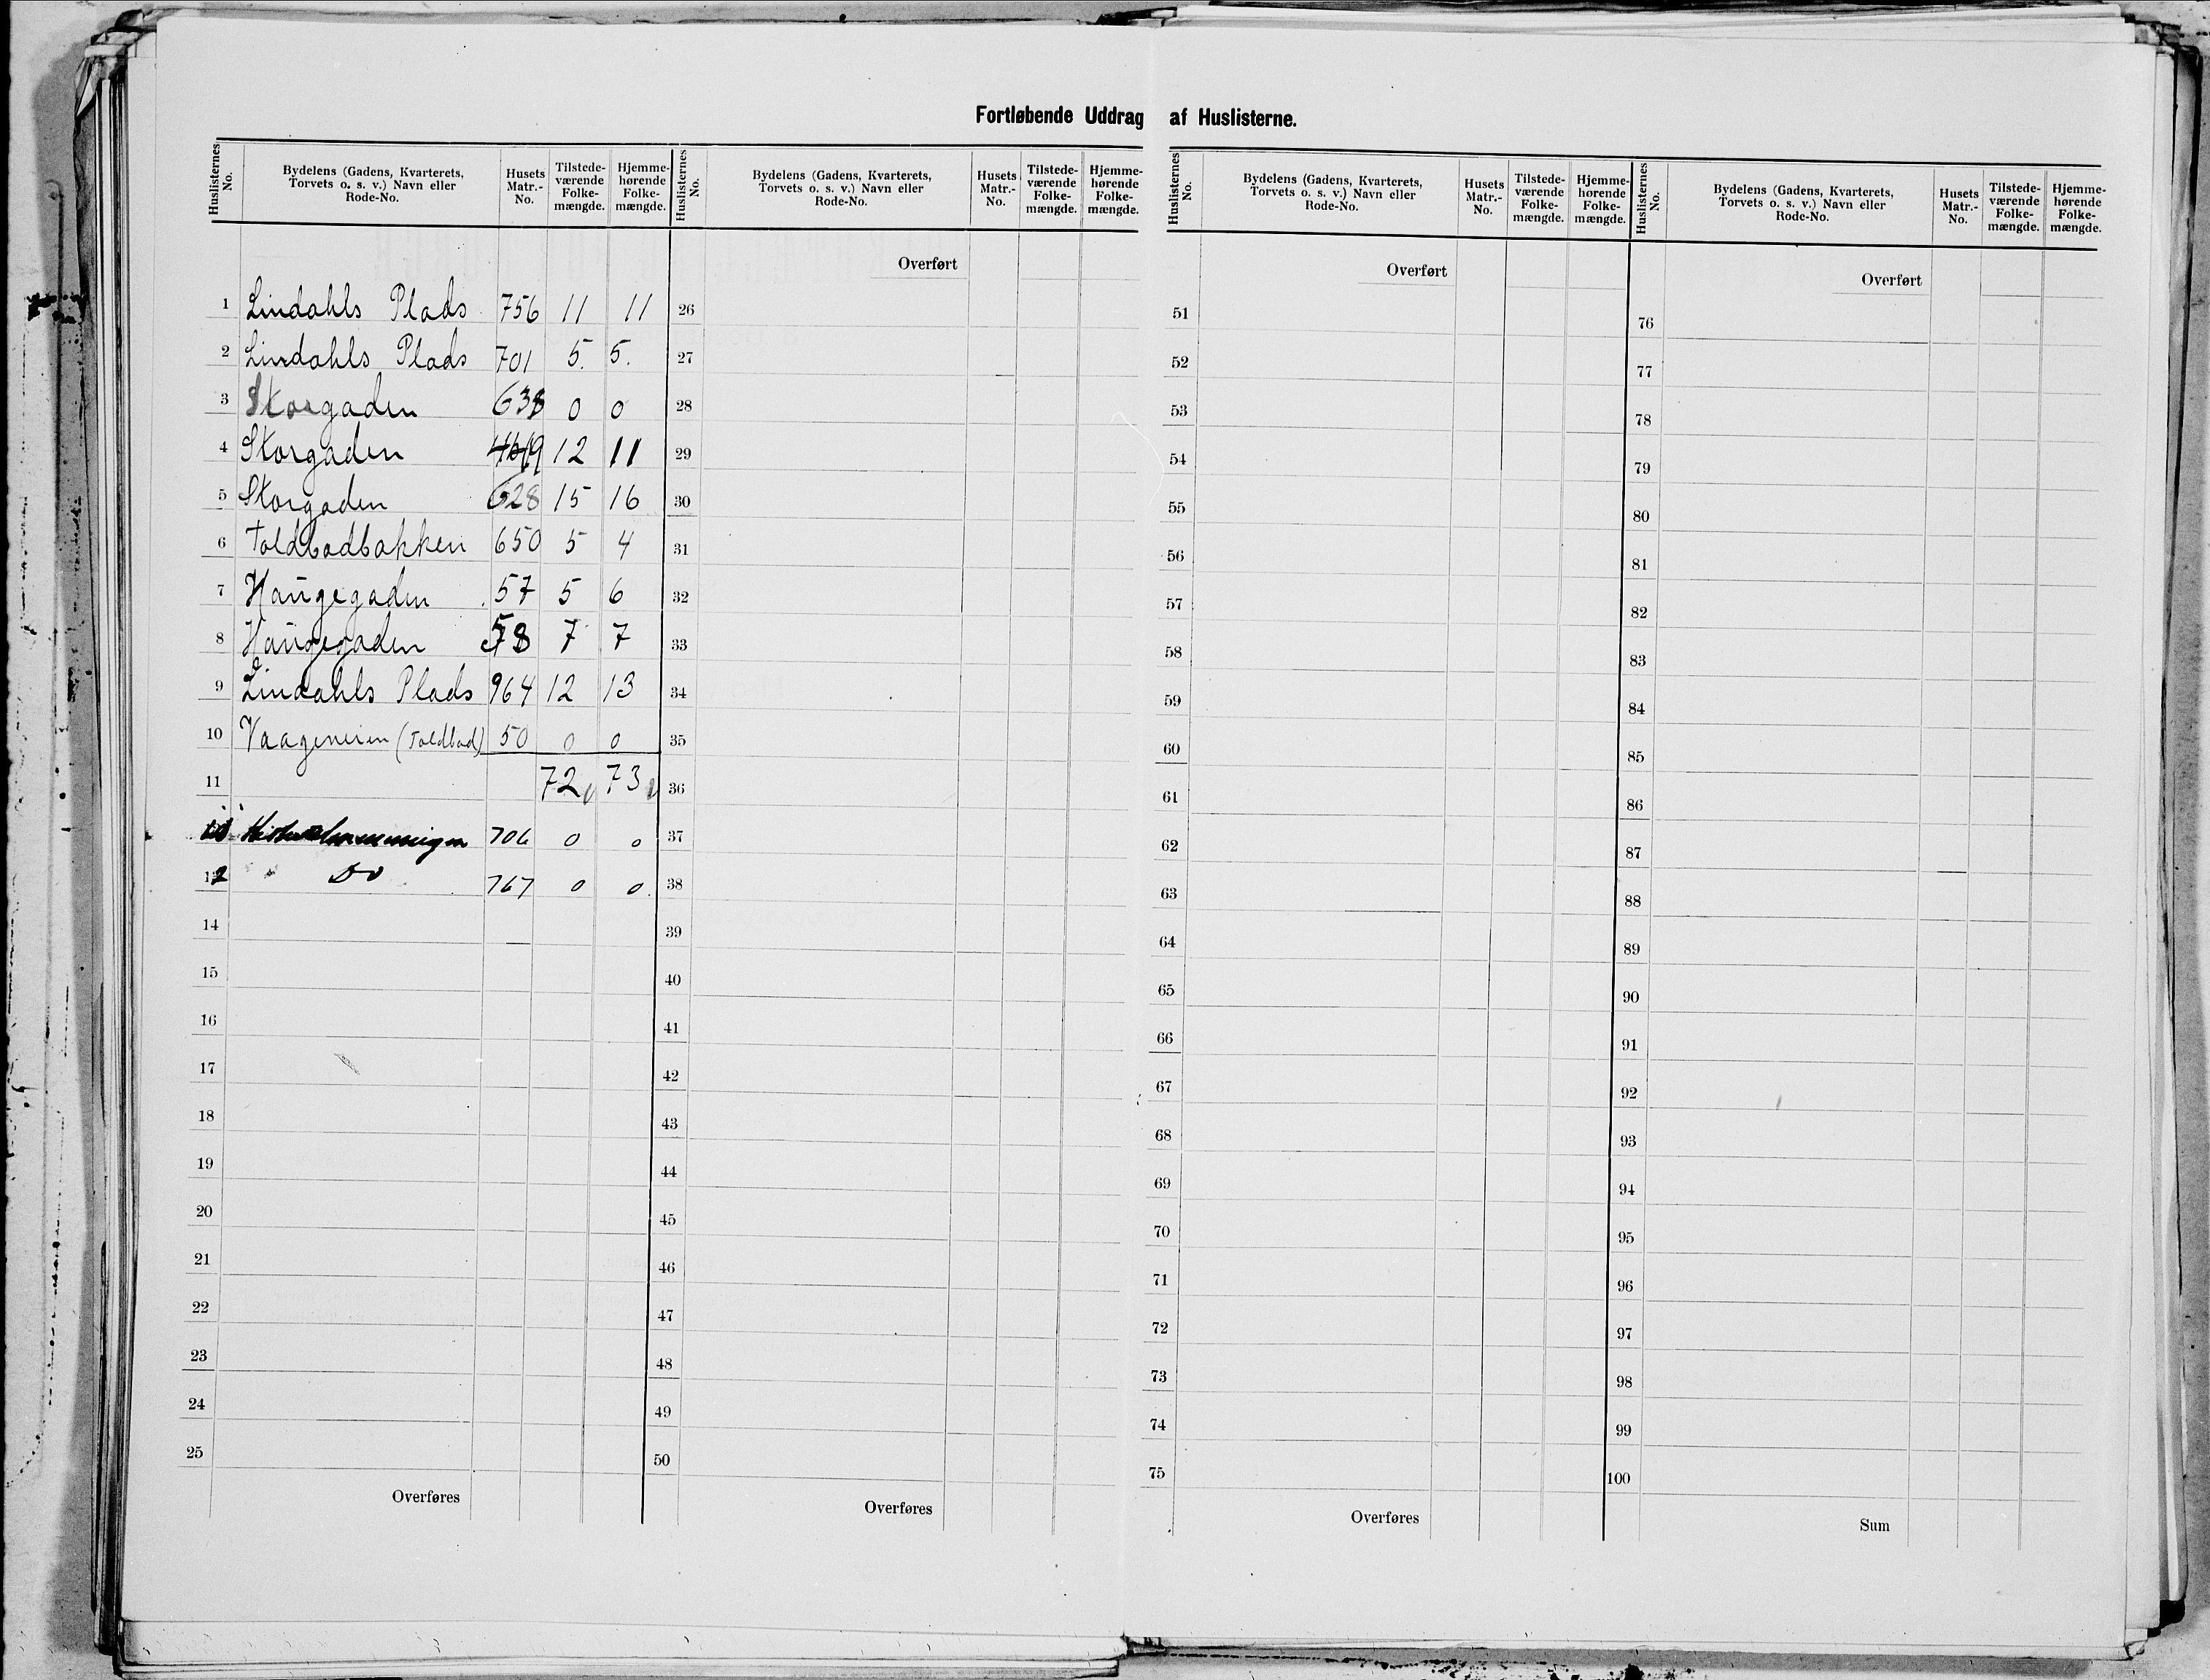 Fortløbende Uddrag af Huslisterne.
Huslisternes No. Bydelens (Gadens, Kvarterets, Torvets o. s. v.) Navn eller Rode-No. Husets Matr.-No. Tilstede-værende Folke-mængde. Hjemme-hørende Folke-mængde. Huslisternes No. Bydelens (Gadens, Kvarterets, Torvets o. s. v.) Navn eller Rode-No. Husets Matr.-No. Tilstede-værende Folke-mængde. Hjemme-hørende Folke-mængde. Huslisternes No. Bydelens (Gadens, Kvarterets, Torvets o. s. v.) Navn eller Rode-No. Husets Matr.-No. Tilstede-værende Folke-mængde. Hjemme-hørende Folke-mængde. Huslisternes No. Bydelens (Gadens, Kvarterets, Torvets o. s. v.) Navn eller Rode-No. Husets Matr.-No. Tilstede-værende Folke-mængde. Hjemme-hørende Folke-mængde.
Overført Overført Overført
1 Lindahls Plads 756 11 11 26 51 76
2 Lindahls Plads 701 5. 5. 27 52 77
3 Storgaden 638 0 0 28 53 78
4 Storgaden 12 11 29 54 79
5 Storgaden 628 15 16 30 55 80
6 Toldbodbakken 650 5 4 31 56 81
7 Haugegaden 57 5 6 32 57 82
8 Haugegaden 58 7 7 33 58 83
9 Lindahls Plads 964 12 13 34 59 84
10 Vaageveien (Toldbod) 50 0 0 35 60 85
11 72 73 36 61 86
706 0 0 37 62 87
Do 767 0 0 38 63 88
14 39 64 89
15 40 65 90
16 41 66 91
17 42 67 92
18 43 68 93
19 44 69 94
20 45 70 95
21 46 71 96
22 47 72 97
23 48 73 98
24 49 74 99
25 50 75 100
Overføres Overføres Overføres Sum